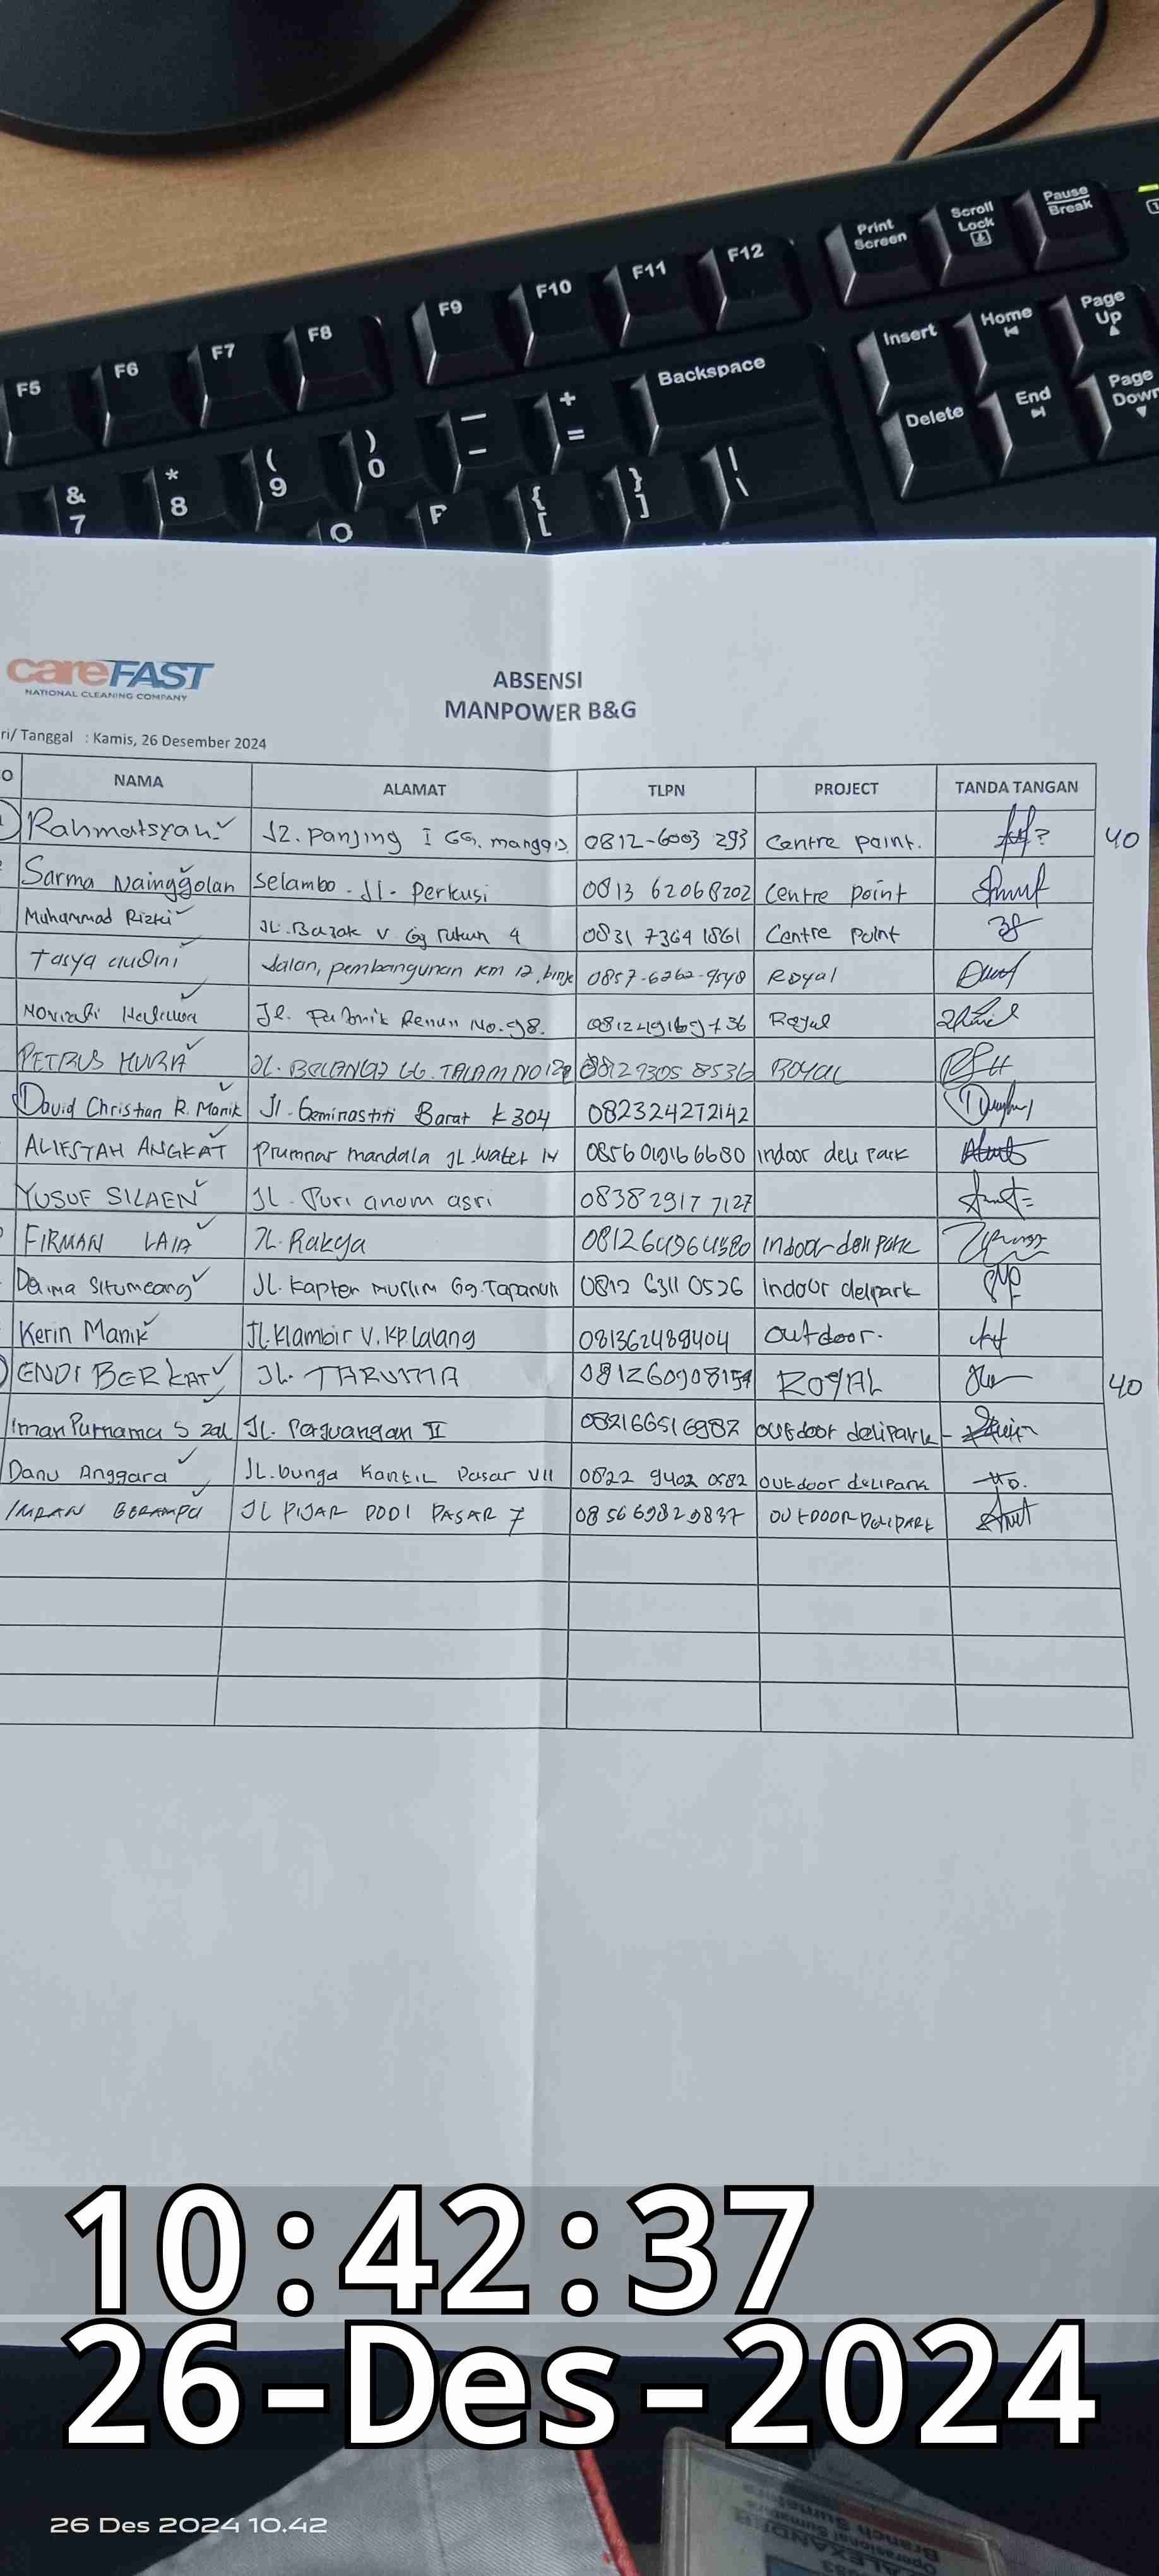 Pause
Break
Scroll
Lock
Print
Screen
F12
F11
F10
F9
F8
F7
F6
F5
Page
Up
Home
Insert
Backspace
Page
Down
End
Delete
+
=
—
–
)
0
(
9
*
8
&
7
}
]
{
[
|
\
P
O
careFAST
NATIONAL CLEANING COMPANY
ABSENSI
MANPOWER B&G
ri/ Tanggal : Kamis, 26 Desember 2024
O NAMA ALAMAT TLPN PROJECT TANDA TANGAN
Rahmatsyah Jl. Panjing I GG. manggis 0812-6003 293 Centre point. 40
Sarma Nainggolan Selambo - Jl - Perkusi 0813 62068202 Centre point
Muhammad Rizki JL. Bazak V Gg rukun 4 0831 7364 1861 Centre Point
Tasya audini Jalan, pembangunan km 12, binje 0857-6262-9548 Royal
Jl. No. 98. Royal
PETRUS HURA JL. BELANGA GG. TALAM NO 12 0812 9305 8536 ROYAL
David Christian R. Manik Jl. Geminastiti Barat K 304 082324272142
ALIFSYAH ANGKAT Prumnar mandala JL. Water IV indoor deli park
YUSUF SILAEN JL. Puri anom asri 0838 2917 7127
FIRMAN LAIA JL. Rakya indoor deli park
Derma Situmeang JL. Kapten muslim Gg. Tapanuli 0812 6311 0526 indoor delipark
Kerin Manik Jl. Klambir V. KP Lalang 081362489404 outdoor.
ENDI BERKAT JL. TARUMA 081260908154 ROYAL 40
Iman Purnama S zal JL. Perjuangan II 082166516982 outdoor delipark
Danu Anggara JL. bunga Kantil Pasar VII 0822 9402 0582 outdoor delipark
IMRAN BERAMPU JL PIJAR PODI PASAR 7 0856 6982 9837 OUTDOOR DELIPARK
10:42:37
26-Des-2024
26 Des 2024 10.42